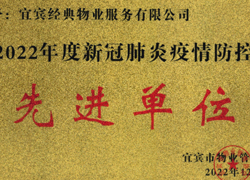 ：宜宾经典物业服务有限公司
2022年度新冠肺炎疫情防控
先进单位
宜宾市物业管
2022年12